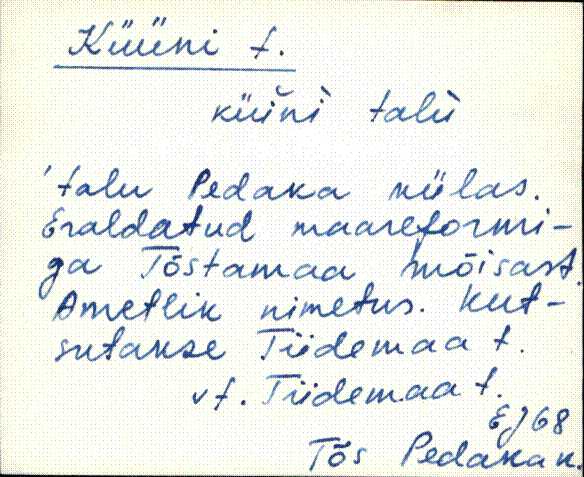 Küüni t.
küi̮nì talù
'talu Pedaka külas.
Eraldatud maareformi-
ga Tõstamaa mõisast.
Ametlik nimetus. Kut-
sutakse Tiidemaa t.
vt. Tiidemaa t.
EJ 68
Tõs Pedaka k.